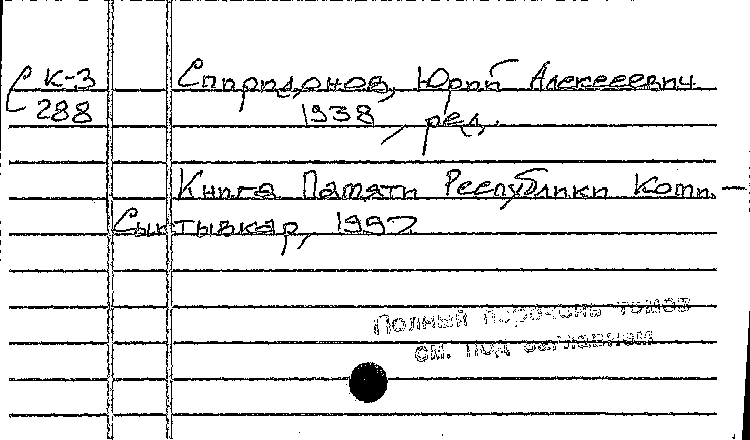 К-3 Спиридонов, Юрий Алексеевич
288 1938 , ред.
Книга Памяти Республики Коми. —
Сыктывкар, 1997
Полный перечень томов
см. под заглавием